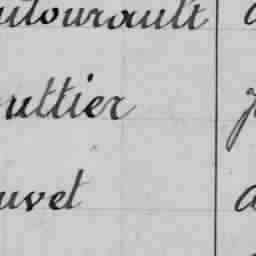 utourault
uttier
uvet